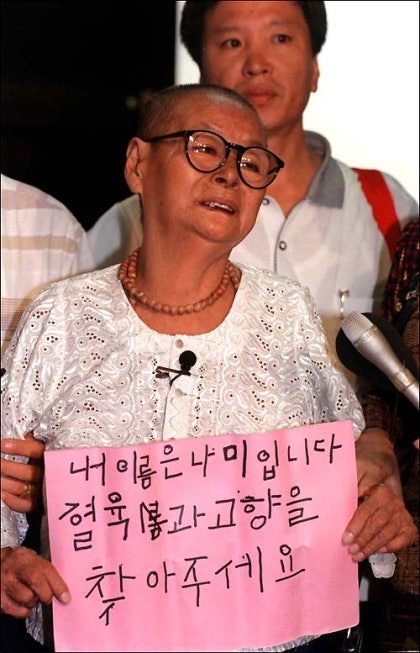 내 이름은 나미입니다
혈육과 고향을
찾아주세요